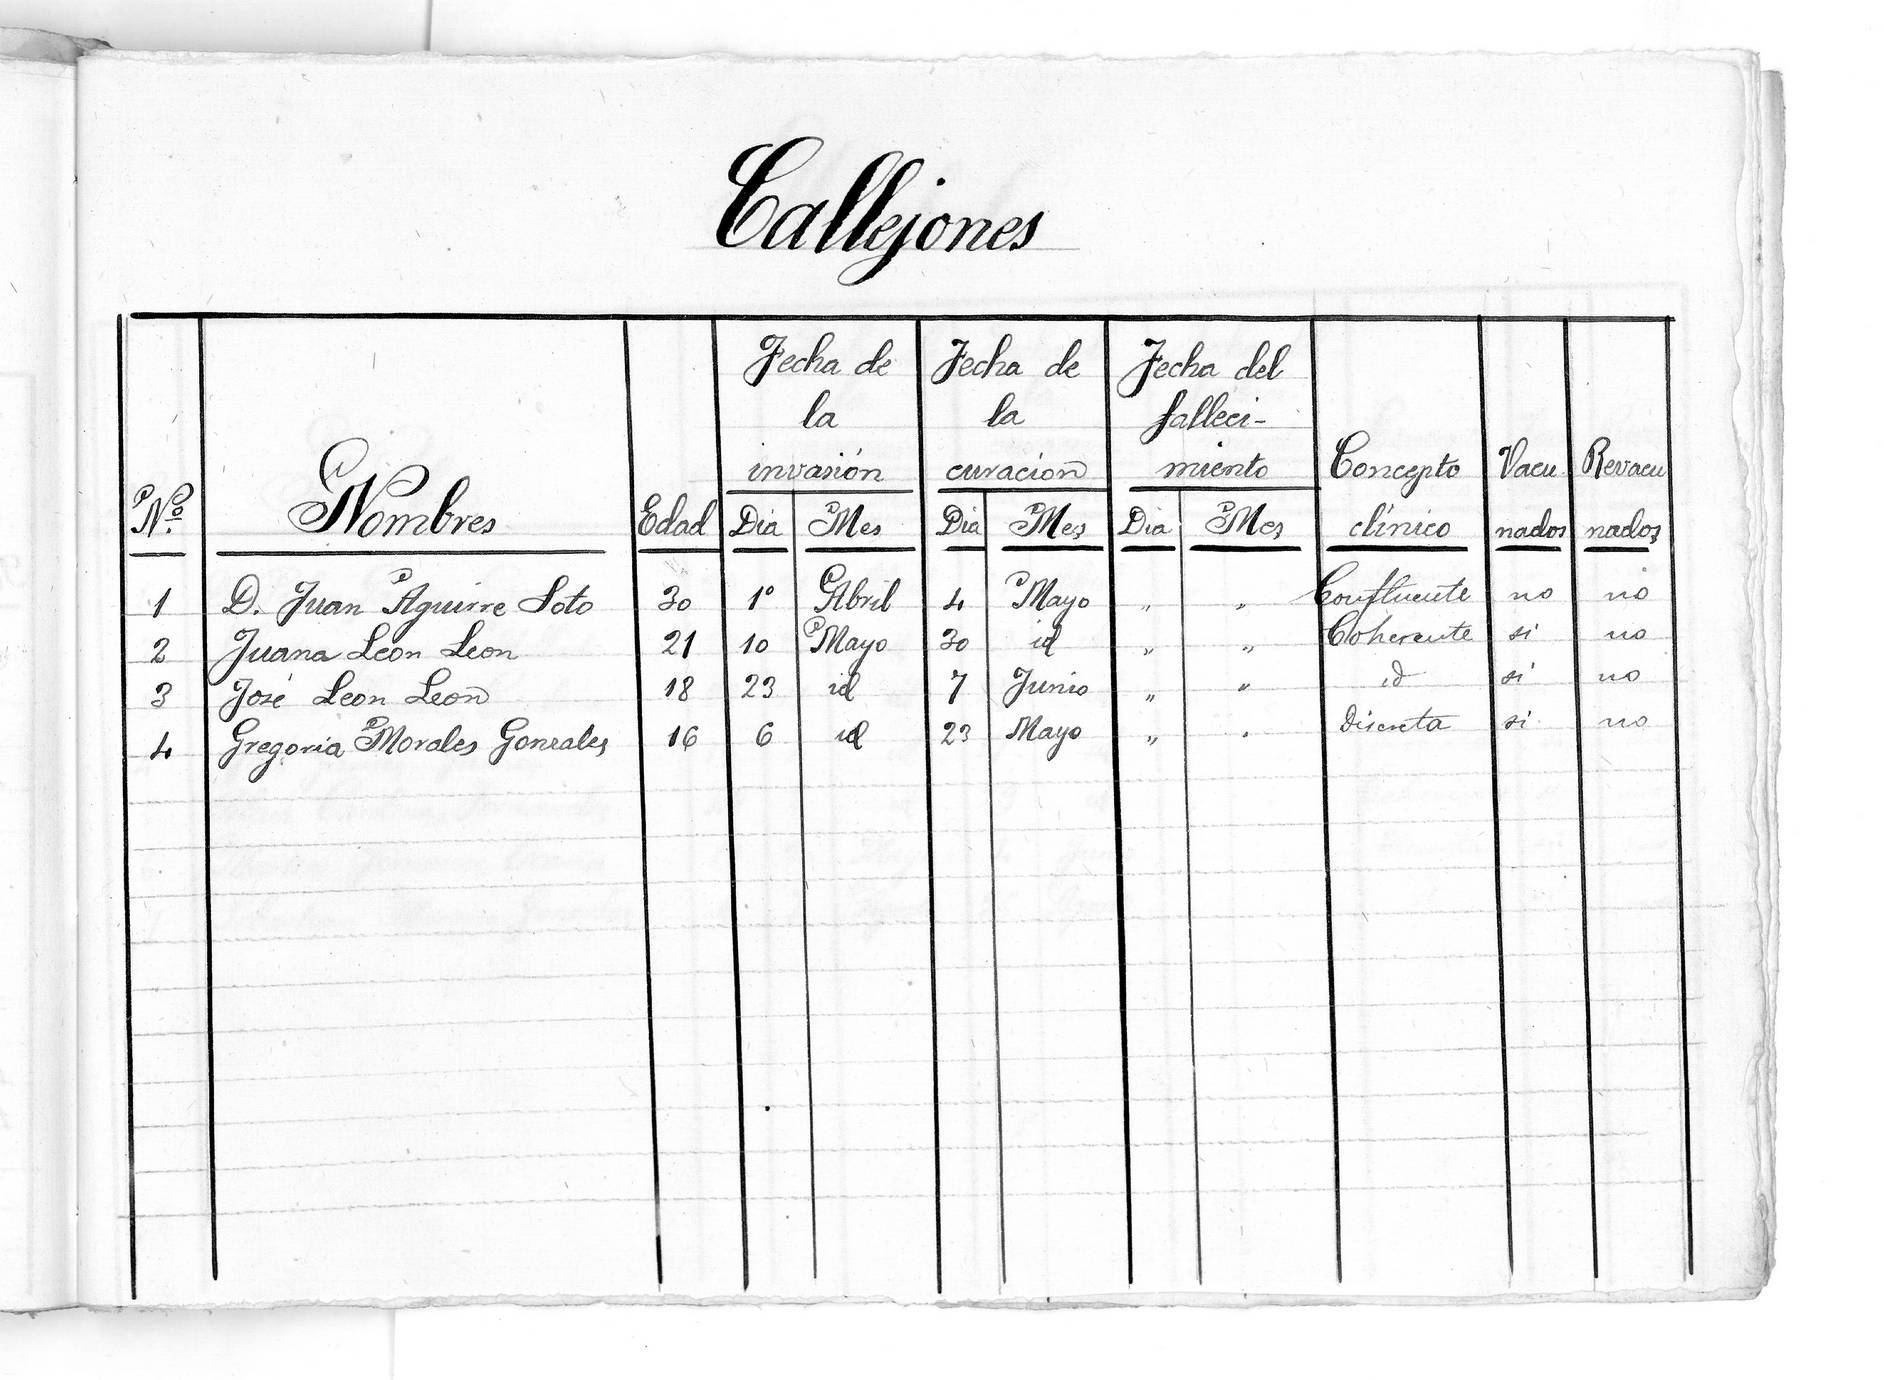 Callejones
Nº. Nombres Edad Fecha de la invasión Dia Mes Fecha de la curacion Dia Mes Fecha del falleci-miento Dia Mes Concepto clínico Vacu nados Revacu nados
1 D. Juan Aguirre Soto 30 1º Abril 4 Mayo " " Confluente no no
2 Juana Leon Leon 21 10 Mayo 30 id " " Coherente si no
3 José Leon Leon 18 23 id 7 Junio " " id si no
4 Gregoria Morales Gonzales 16 6 id 23 Mayo " " Discreta si no